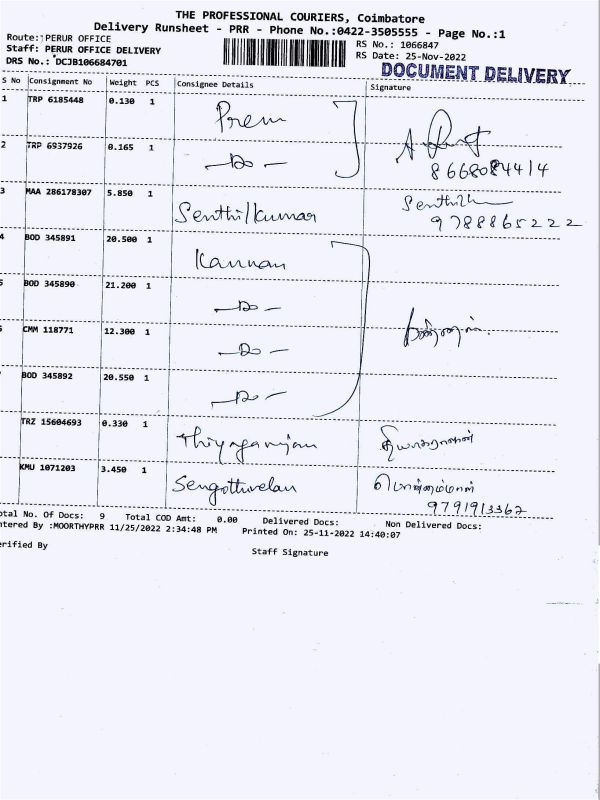 THE PROFESSIONAL COURIERS, Coimbatore
Delivery Runsheet - PRR - Phone No.:0422-3505555 - Page No.:1
Route: PERUR OFFICE
RS No.: 1066847
Staff: PERUR OFFICE DELIVERY
RS Date: 25-Nov-2022
DRS No.: DCJB106684701
DOCUMENT DELIVERY
S No Consignment No Weight PCS Consignee Details Signature
1 TRP 6185448 0.130 1 Prem
2 TRP 6937926 0.165 1 -Do- 8668084414
3 MAA 286178307 5.850 1 Senthilkumar Senthil 9788865222
4 BOD 345891 20.500 1 Kannan
BOD 345890 21.200 1 -Do-
CMM 118771 12.300 1 -Do-
BOD 345892 20.550 1 -Do-
TRZ 15604693 0.330 1 Thiyagarajan தியாகராஜன்
KMU 1071203 3.450 1 Sengottuvelan பொன்னம்மாள்
9791913362
otal No. Of Docs: 9 Total COD Amt: 0.00 Delivered Docs: Non Delivered Docs:
ntered By :MOORTHYPRR 11/25/2022 2:34:48 PM Printed On: 25-11-2022 14:40:07
erified By
Staff Signature